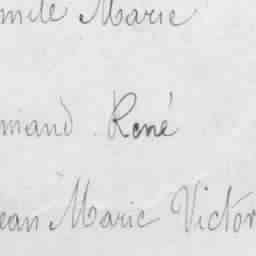 mile Marie
mand René
ean Marie Victor